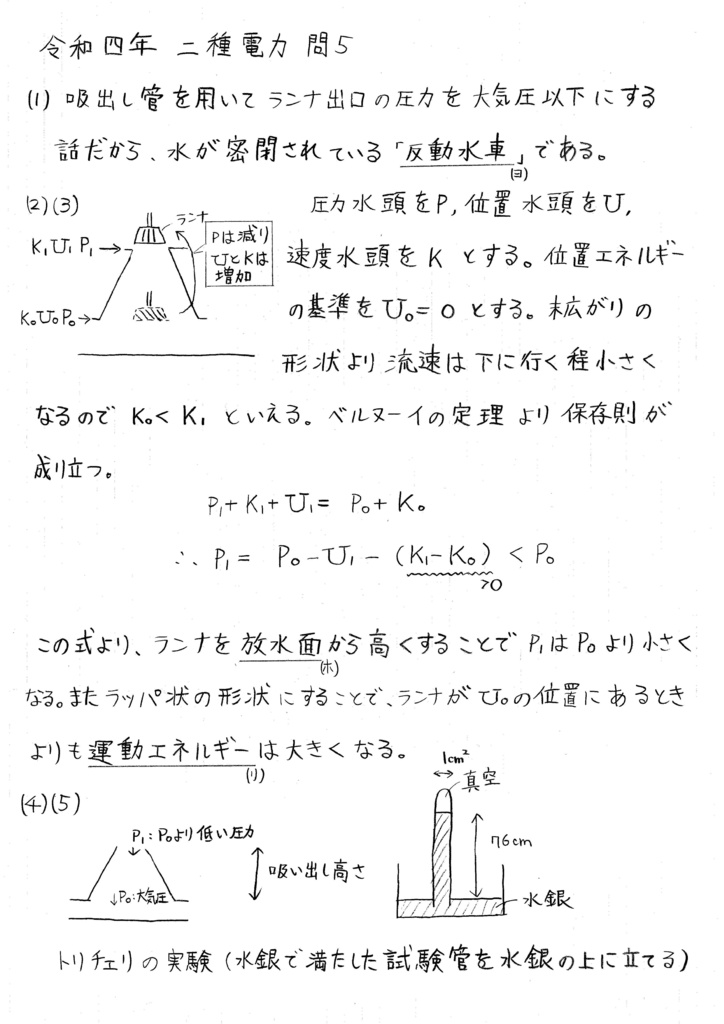 令和四年 二種電力 問5
(1) 吸出し管を用いて ランナ出口の圧力を 大気圧以下にする
話だから、水が密閉されている「反動水車」である。
(ヨ)
(2)(3)
ランナ
圧力水頭をP, 位置水頭をU,
K₁U₁P₁→
Pは減り
UとKは
増加
速度水頭をKとする。位置エネルギー
K₀U₀P₀→
の基準をU₀=0とする。末広がりの
形状より流速は下に行く程小さく
なるのでK₀<K₁といえる。ベルヌーイの定理より保存則が
成り立つ。
P₁+K₁+U₁=P₀+K₀
∴P₁=P₀-U₁-(K₁-K₀)<P₀
>0
この式より、ランナを放水面から高くすることでP₁はP₀より小さく
(ホ)
なる。またラッパ状の形状にすることで、ランナがU₀の位置にあるとき
よりも運動エネルギーは大きくなる。
(リ)
(4)(5)
1cm²
真空
P₁:P₀より低い圧力
吸い出し高さ
76cm
↓P₀:大気圧
水銀
トリチェリの実験(水銀で満たした試験管を水銀の上に立てる)